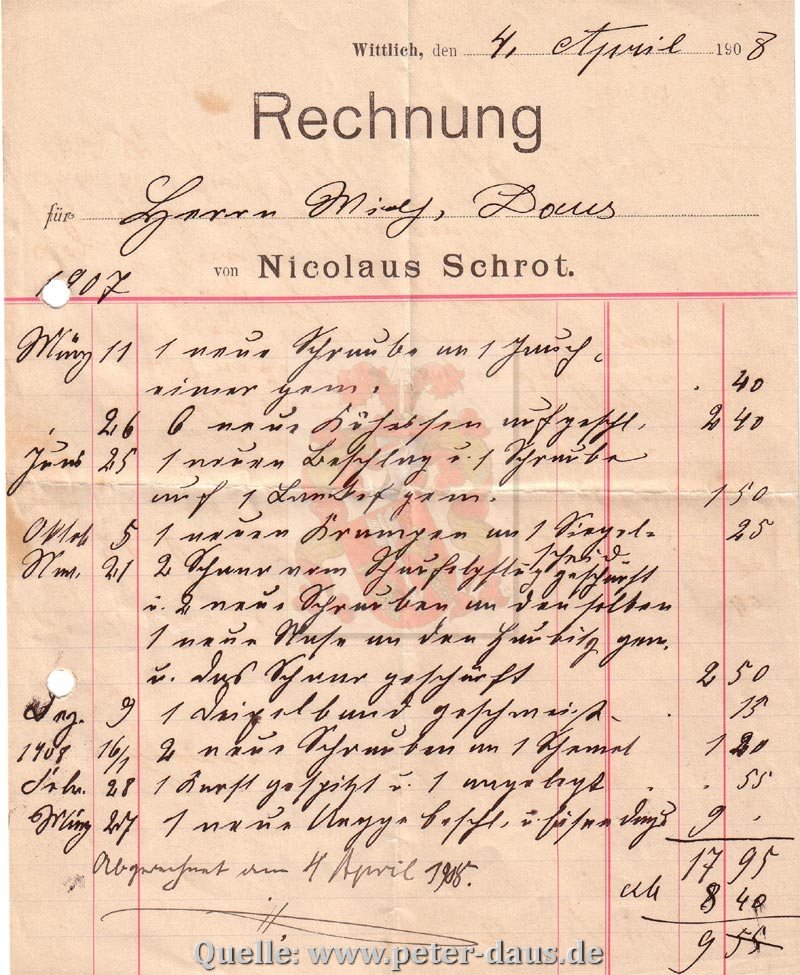 Wittlich, den 4. April 1908
Rechnung
für Herrn Wilh. Daus
von Nicolaus Schrot.
1907
März 11 1 neue Schraube an 1 Jauch-
eimer gem. . 40
. 26 6 neue aufgeschl. 2 40
Juni 25 1 neuen Beschlag u. 1 Schraube
auf 1 gem. 1 50
Oktob 5 1 neuen Krampen an 1 25
Nov. 21 2 Schaar vom Schaufelpflug geschärft
u. 2 neue Schrauben an denselben
1 neue Nase an den gem.
u. das Schaar geschärft 2 50
Dez. 9 1 geschweist . 15
1908 16/1 2 neue Schrauben an 1 Schemel 1 20
Febr. 28 1 Karst gespitzt u. 1 angelegt . . 55
März 27 1 neue beschl. u. 9 .
17 95
Abgerechnet am 4 April 1908.
ab 8 40
9 55
Quelle: www.peter-daus.de